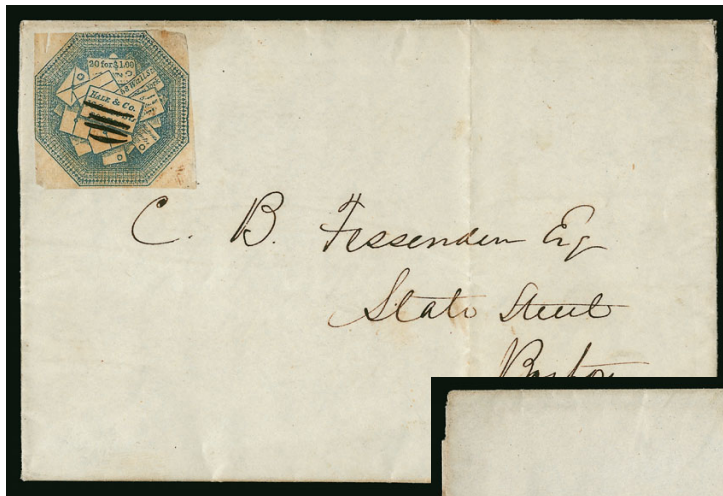 20 for $1.00
HALE & Co.
C. B. Fessenden Esq
State Street
Boston